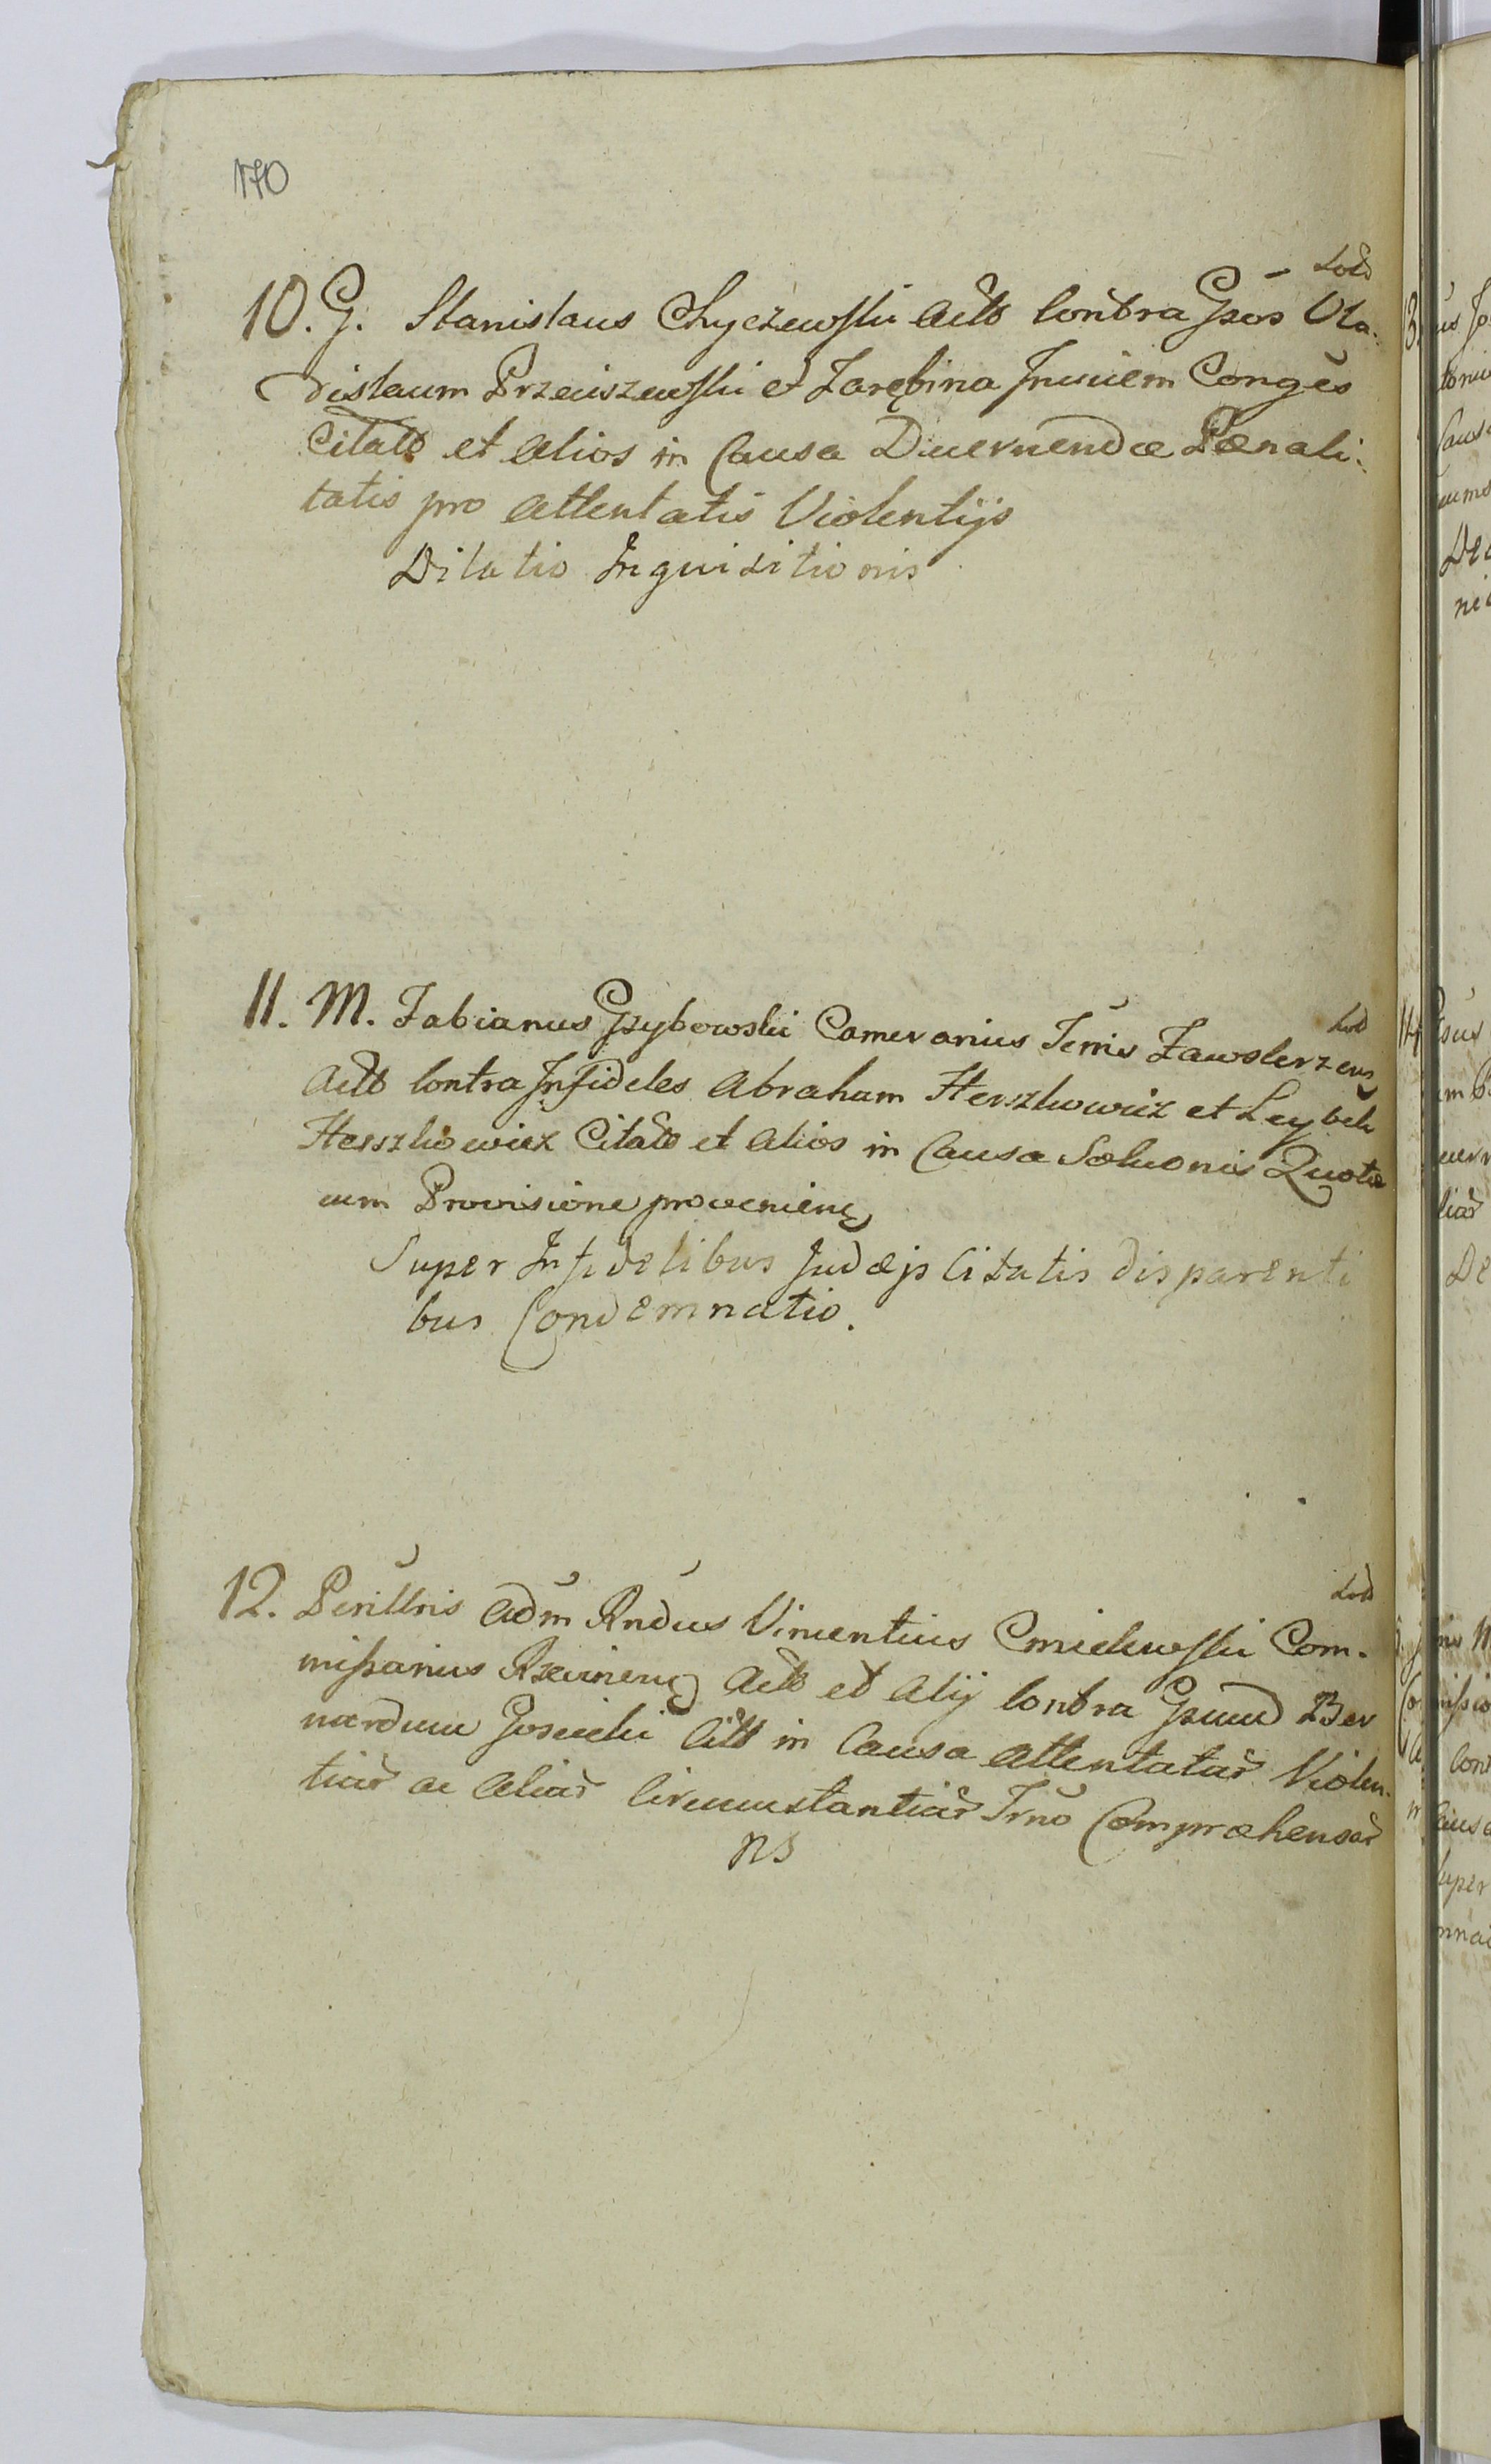 170
10. G. Stanislaus Chyczewski Actt Contra Gsōs Vla-
dislaum Przeciszewski et Zarębina Invicem Congēs
Citatt et Alios in Causa Decernendæ Pænali-
tatis pro Attentatis Violentijs
Dilatio Inquisitionis
11. M. Fabianus Grzybowski Camerarius Terrēs Zawskrzens
Actt Contra Infideles Abraham Herszkowicz et Leybek
Herszkowicz Citatt et Alios in Causa Solvonis Quotæ
cum Provisione provenien
Super Infidelibus Judæjs Citatis disparenti
bus Condemnatio.
12. Perillris Adm̄ Rndus Vincentius Cmielewski Com-
missarius Actt et Alij Contra Gsum Ber
nardum Citt in Causa Attentatar̄ Violen-
tiar̄ ac Aliar̄ Circumstantiar̄ Trno Compræhensar̄
NS